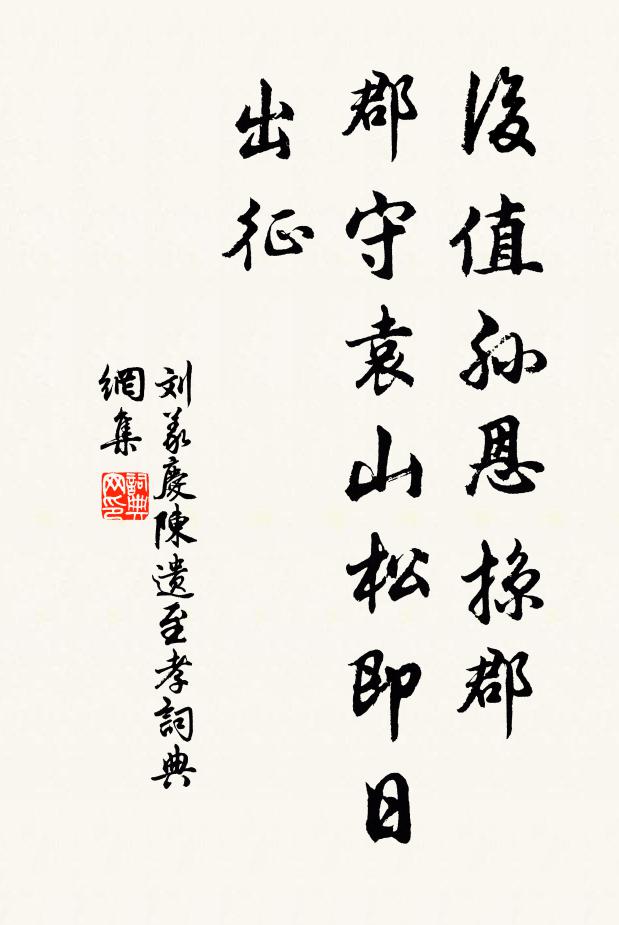 後值孫恩掠郡
郡守袁山松即日
出征
刘義慶陳遺至孝詞典
網集
詞典
网印